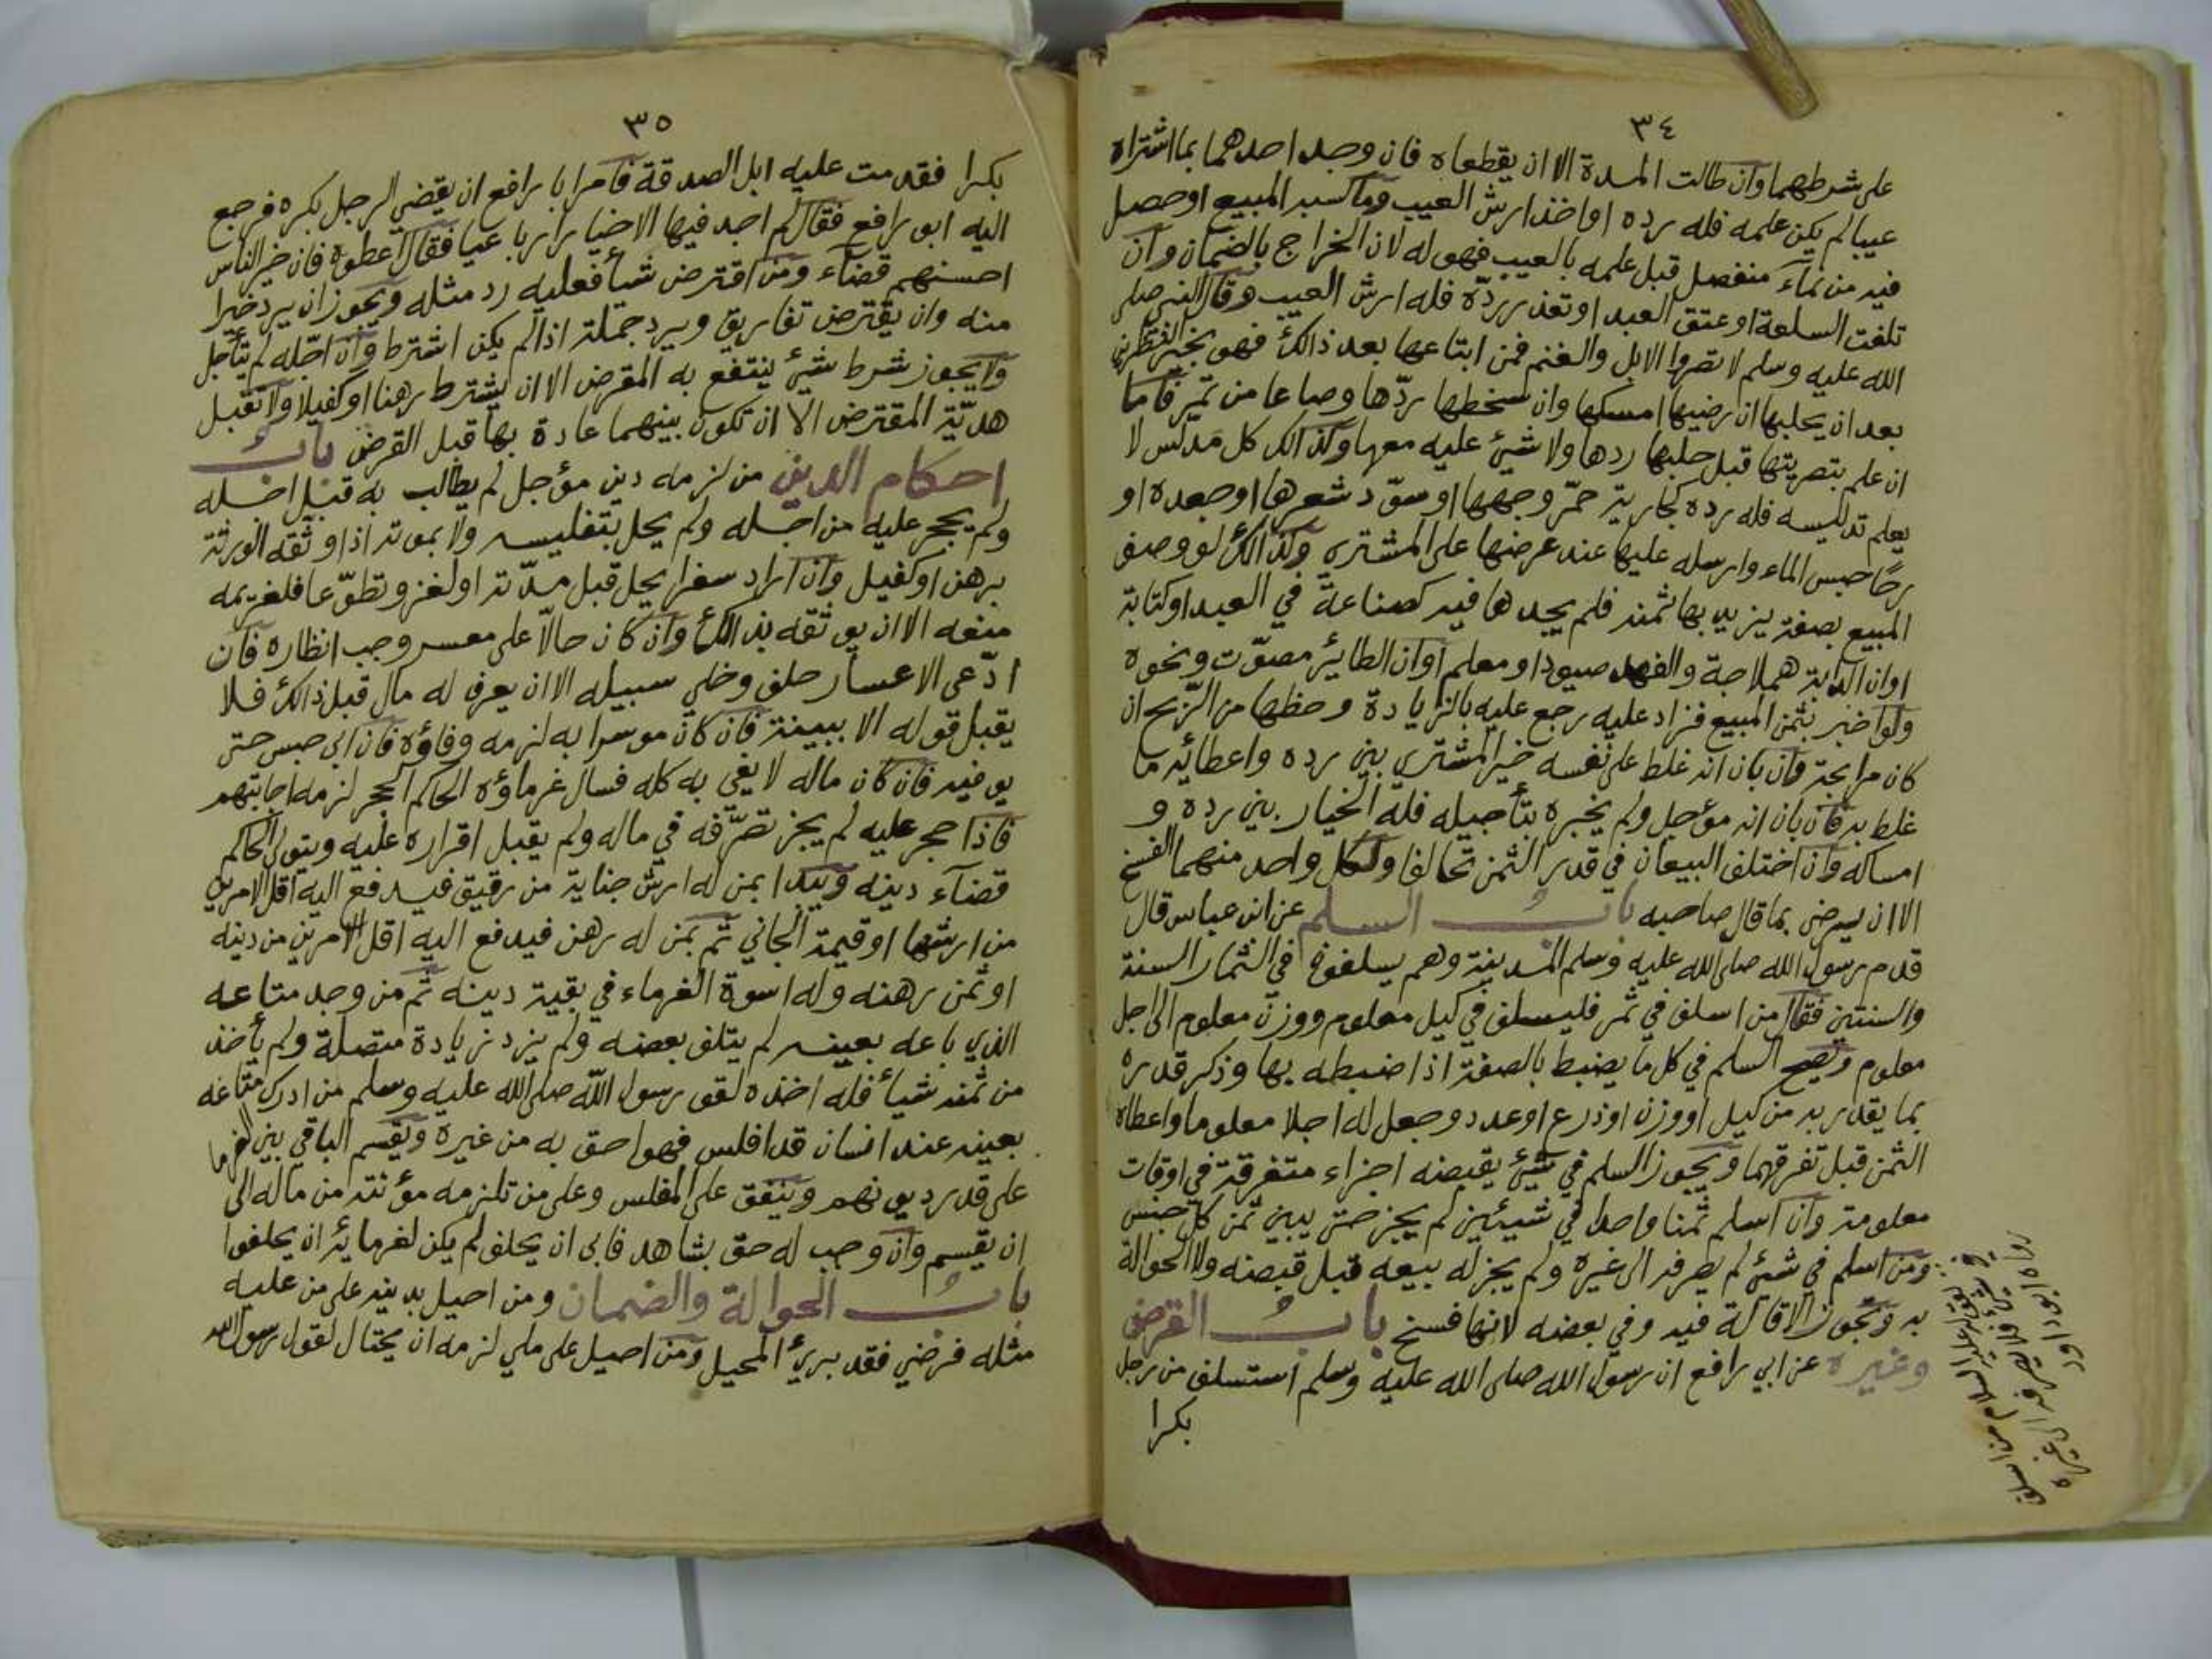 ٣٤
على شرطهما وان طالت المدة الا ان يقطعاه فان وجد احدهما بما اشتراه
عيبا لم يكن علمه فله رده او اخذ ارش العيب وما كسبه المبيع او حصل
فيه من نماء منفصل قبل علمه بالعيب فهو له لان الخراج بالضمان وان
تلفت السلعة او عتق العبد او تعذر ردّه فله ارش العيب وقال النبي صلى
الله عليه وسلم لا تصروا الابل والغنم فمن ابتاعها بعد ذالك فهو بخير النظرين
بعد ان يحلبها ان رضيها امسكها وان سخطها ردّها وصاعا من تمر فاما
ان علم بتصريتها قبل حلبها ردها ولا شيئ عليه معها وكذالك كل مدلس لا
يعلم تدليسه فله رده كجارية حمّر وجهها او سوّد شعرها او جعده او
رحًا حبس الماء وارسله عليها عند عرضها على المشتري وكذالك لو وصف
المبيع بصفة يزيد بها ثمنه فلم يجدها فيه كصناعة في العبد او كتابة
او ان الدابة هملاجة والفهد صيود او معلم او ان الطائر مصوّت ونحوه
ولو اخبر بثمن المبيع فزاد عليه رجع عليه بالزيادة وحظها من الرّبح ان
كان مرابحة فان بان انه غلط على نفسه خير المشتري بين رده واعطائه ما
غلط به فان بان انه مؤجل ولم يخبره بتأجيله فله الخيار بين رده و
امساكه وان اختلف البيعان في قدر الثمن تحالفا ولكل واحد منهما الفسخ
الا ان يرضى بما قال صاحبه باب السلم عن ابن عباس قال
قدم رسول الله صلى الله عليه وسلم المدينة وهم يسلفون في الثمار السنة
والسنتين فقال من اسلف في ثمر فليسلف في كيل معلوم ووزن معلوم الى اجل
معلوم ويصح السلم في كل ما يضبط بالصفة اذا ضبطه بها وذكر قدره
بما يقدر به من كيل او وزن او ذرع او عدد وجعل له اجلا معلوما واعطاه
الثمن قبل تفرقهما ويجوز السلم في شيئ يقبضه اجزاء متفرقة في اوقات
معلومة وان اسلم ثمنا واحدا في شيئين لم يجز حتى يبين ثمن كل جنس
ومن اسلم في شئ لم يصرفه الى غيره ولم يجز له بيعه قبل قبضه ولا الحوالة
به وتجوز الاقالة فيه وفي بعضه لانها فسخ باب القرض
وغيره عن ابي رافع ان رسول الله صلى الله عليه وسلم استسلف من رجل
بكرا
لقوله عليه السلام من اسلف
في شئ فلا يصرفه الى غيره
رواه ابو داود
٣٥
بكرا فقدمت عليه ابل الصدقة فامر ابا رافع ان يقضي الرجل بكره فرجع
اليه ابو رافع فقال لم اجد فيها الا خيارا رباعيا فقال اعطوه فان خير الناس
احسنهم قضآء ومن اقترض شيأ فعليه رد مثله ويجوز ان يرد خيرا
منه وان يقترض تفاريق ويرد جملة اذا لم يكن اشترط وان اجّله لم يتأجل
ولا يجوز شرط شيئ ينتفع به المقرض الا ان يشترط رهنا او كفيلا ولا تقبل
هديّة المقترض الا ان تكون بينهما عادة بها قبل القرض باب
احكام الدين من لزمه دين مؤجل لم يطالب به قبل اجله
ولم يحجر عليه من اجله ولم يحل بتفليسه ولا بموته اذا وثقه الورثة
برهن او كفيل وان اراد سفرا يحل قبل مدّته او لغزو تطوّعا فلغريمه
منعه الا ان يوثقه بذالك وان كان حالّا على معسر وجب انظاره فان
ادّعى الاعسار حلف وخلي سبيله الا ان يعرف له مال قبل ذالك فلا
يقبل قوله الا ببينة فان كان موسرا به لزمه وفاؤه فان ابى حبس حتى
يوفيه فان كان ماله لا يفي به كله فسال غرماؤه الحاكم الحجر لزمه اجابتهم
فاذا حجر عليه لم يجز تصرّفه في ماله ولم يقبل اقراره عليه ويتولى الحاكم
قضآء دينه ويبدا بمن له ارش جناية من رقيق فيدفع اليه اقل الامرين
من ارشها او قيمة الجاني ثم بمن له رهن فيدفع اليه اقل الامرين من دينه
او ثمن رهنه وله اسوة الغرماء في بقية دينه ثم من وجد متاعه
الذي باعه بعينه لم يتلف بعضه ولم يزد زيادة متصلة ولم يأخذ
من ثمنه شيأ فله اخذه لقول رسول الله صلى الله عليه وسلم من ادرك متاعه
بعينه عند انسان قد افلس فهو احق به من غيره ويقسم الباقي بين الغرما
على قدر ديونهم وينفق على المفلس وعلى من تلزمه مؤنته من ماله الى
ان يقسم وان وجب له حق بشاهد فابى ان يحلف لم يكن لغرمائه ان يحلفوا
باب الحوالة والضمان ومن احيل بدينه على من عليه
مثله فرضي فقد بريء المحيل ومن احيل على ملي لزمه ان يحتال لقول رسول الله